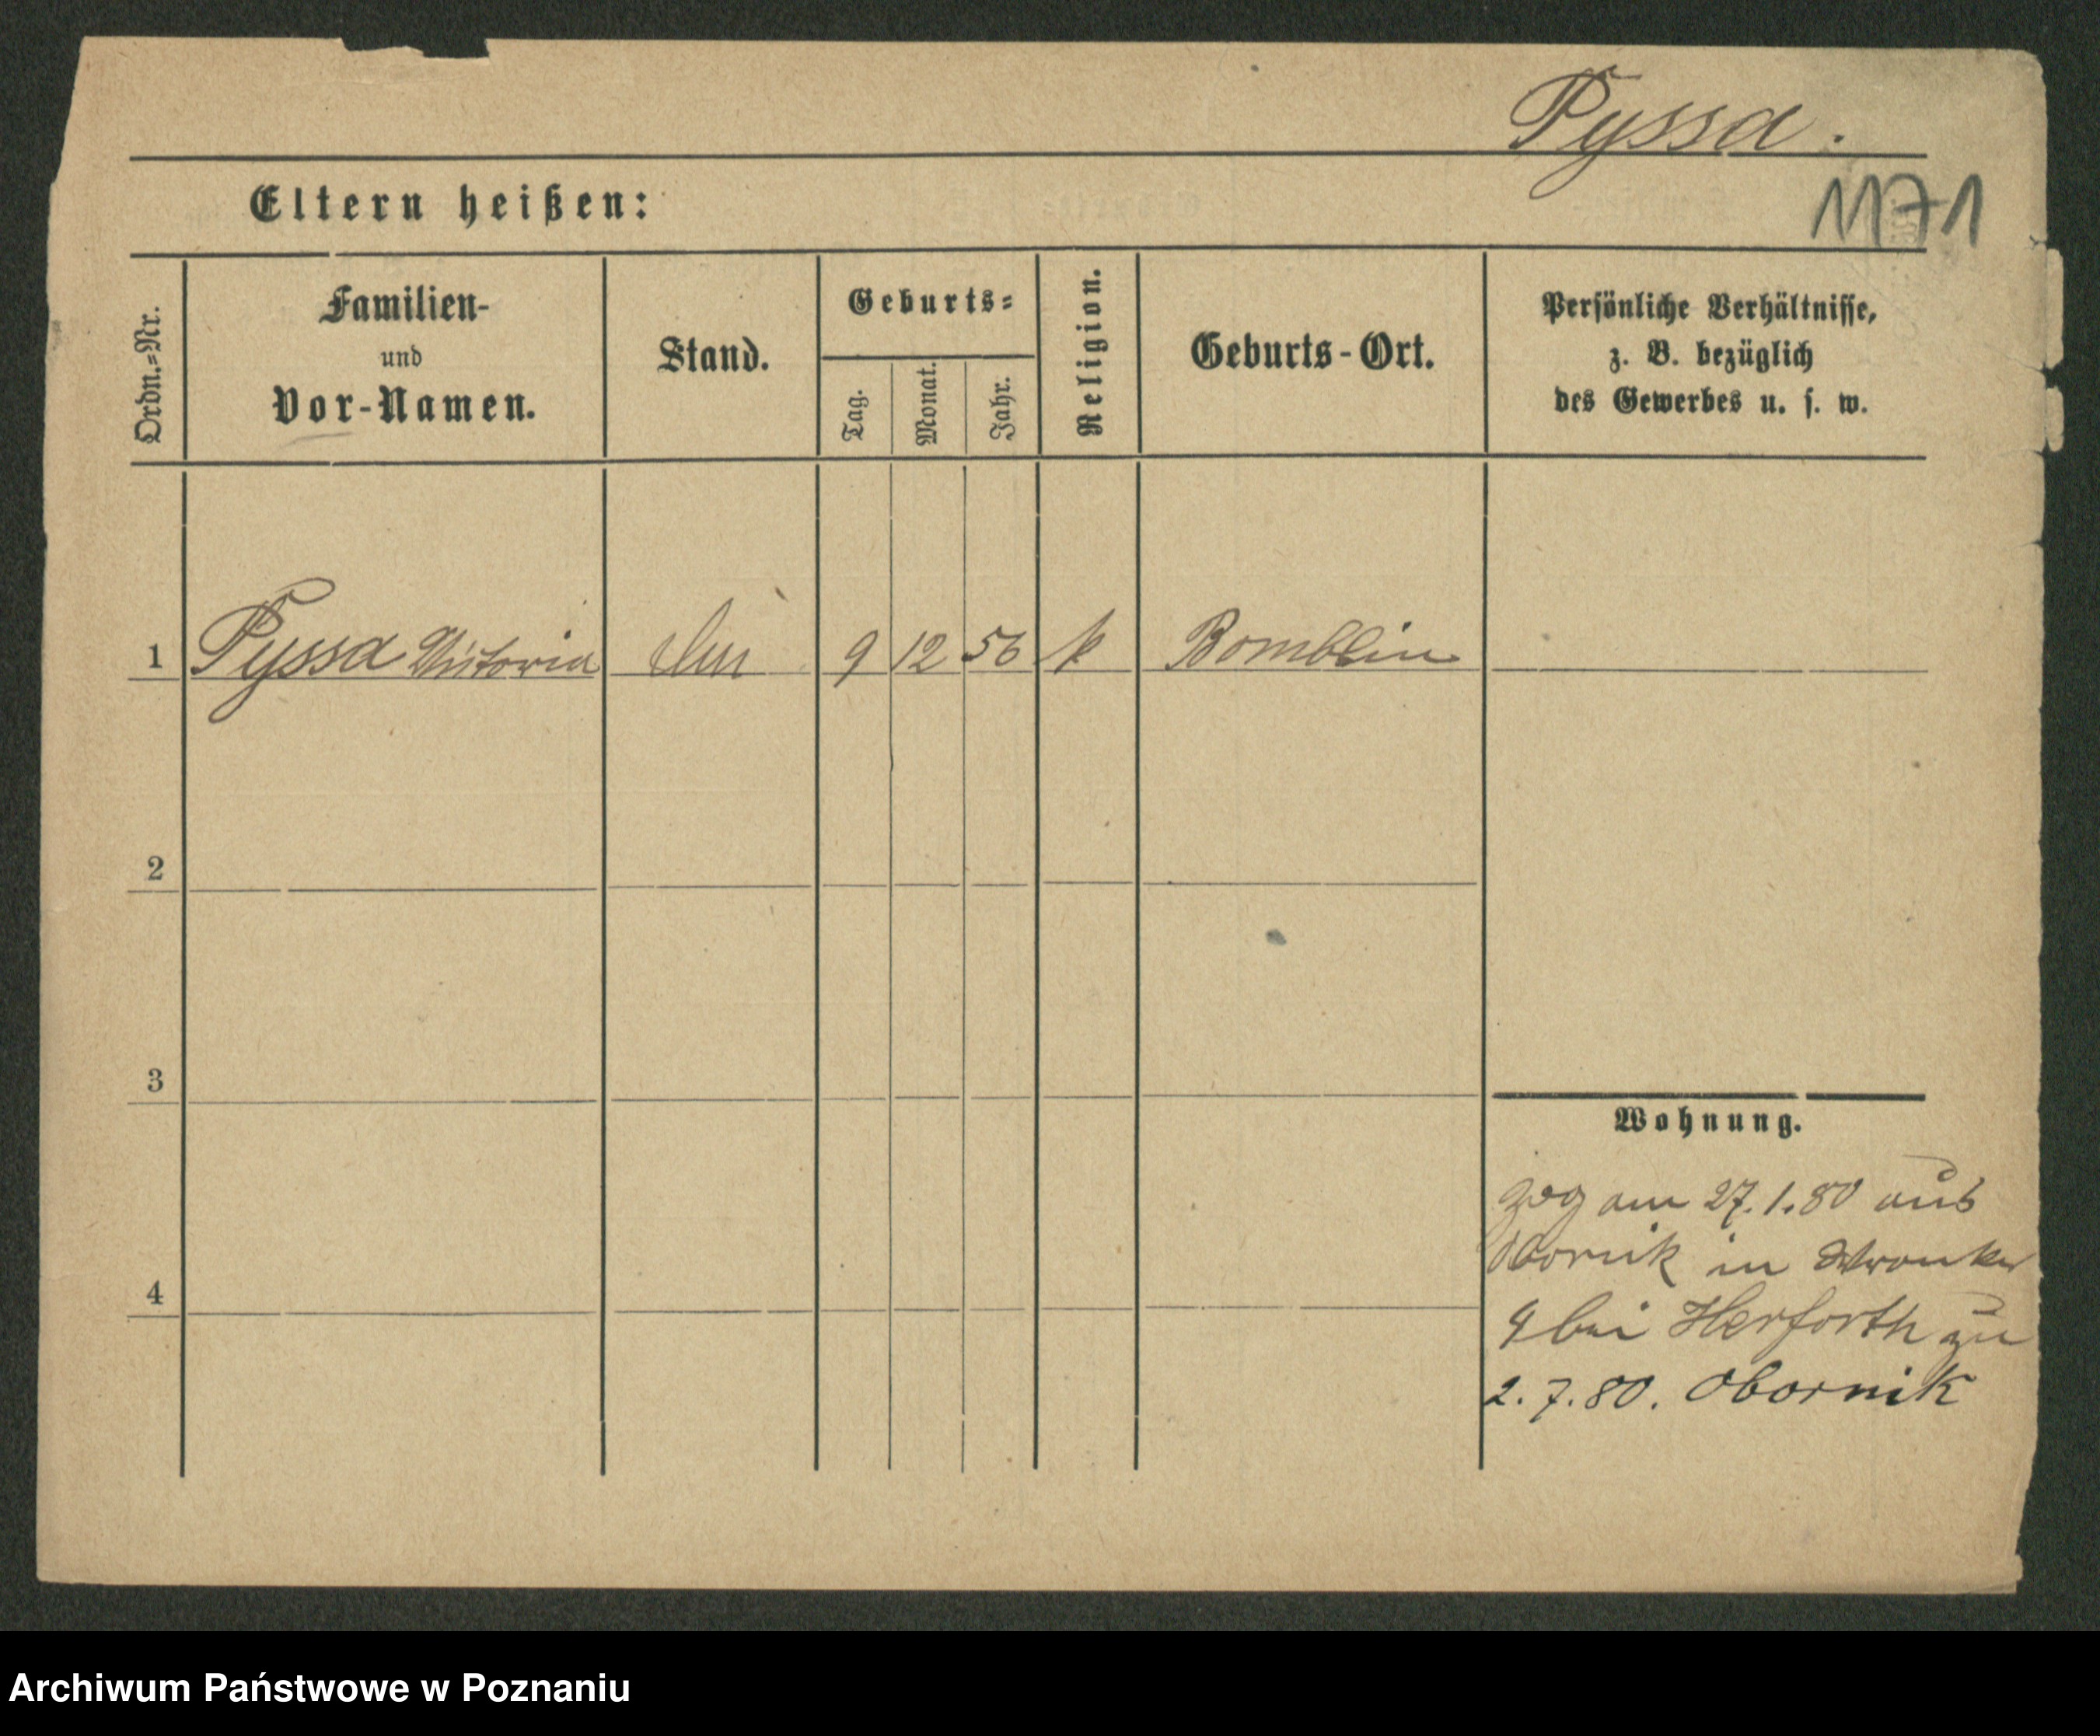 Pyssa.
1171
Eltern heißen:
Ordn.=Nr.
Familien-
und
Vor-Namen.
Stand.
Geburts=
Tag.
Monat.
Jahr.
Religion.
Geburts-Ort.
Persönliche Verhältnisse,
z. B. bezüglich
des Gewerbes u. s. w.
1 Pyssa Victoria 9 12 56 k Bomblin
2
3
4
Wohnung.
zog am 27.1.80 aus
Obornik in Wronker
9 bei Herforth zu
2.7.80. Obornik
Archiwum Państwowe w Poznaniu